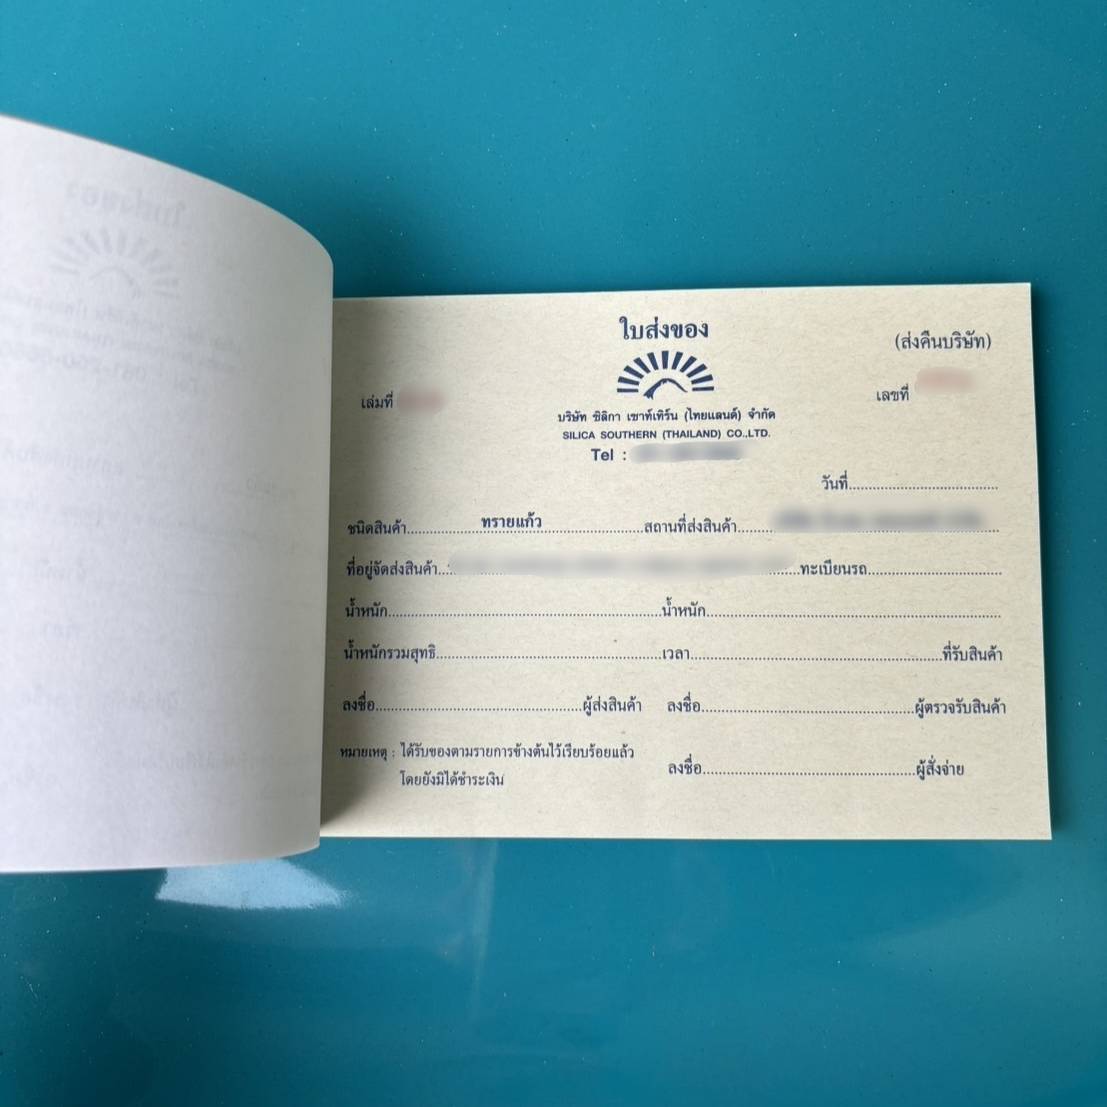 ใบส่งของ
(ส่งคืนบริษัท)
เล่มที่
เลขที่
บริษัท ซิลิกา เซาท์เทิร์น (ไทยแลนด์) จำกัด
SILICA SOUTHERN (THAILAND) CO.,LTD.
Tel :
วันที่
ชนิดสินค้า ทรายแก้ว สถานที่ส่งสินค้า
ที่อยู่จัดส่งสินค้า ทะเบียนรถ
น้ำหนัก น้ำหนัก
น้ำหนักรวมสุทธิ เวลา ที่รับสินค้า
ลงชื่อ ผู้ส่งสินค้า ลงชื่อ ผู้ตรวจรับสินค้า
หมายเหตุ : ได้รับของตามรายการข้างต้นไว้เรียบร้อยแล้ว
โดยยังมิได้ชำระเงิน
ลงชื่อ ผู้สั่งจ่าย